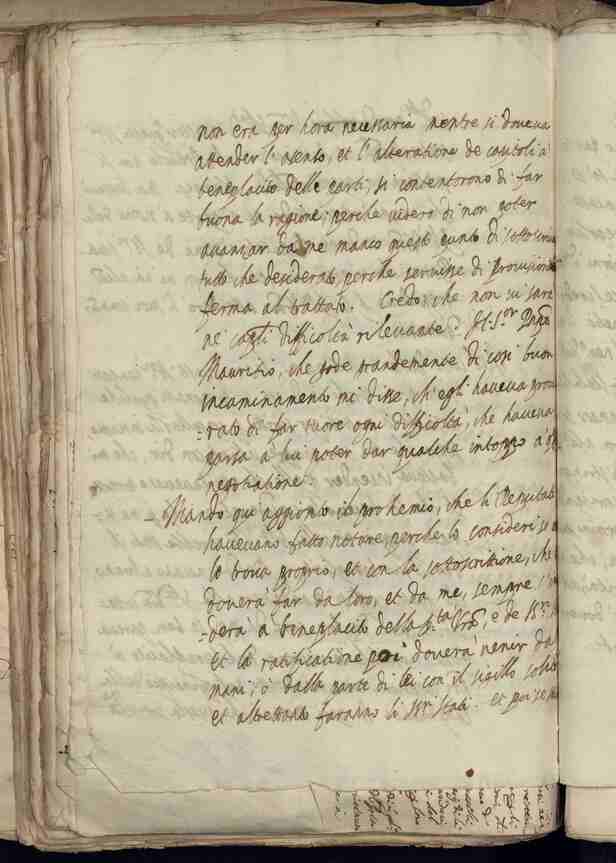 non era per hora necessaria mentre si doveva
attender l'assenso, et l'alteratione de capitoli a
beneplacito delle parti, si contentorono di far
buona la ragione; perche videro di non poter
avanzar da me manco questo punto di
tutto che desiderato, perche servisse di provisione
ferma al trattato. Credo, che non vi sarà
ne' difficoltà rilevante. Il S.or Prñpe
Mauritio, che gode grandemente di così buon
incaminamento mi disse, ch'egli haveva procu
-rato di far levare ogni difficoltà, che haveva
parso a lui poter dar qualche intoppo a
negotiatione.
- Mando qui aggionto il prohemio, che li Deputati
havevano fatto notare, perche lo consideri se
lo trova proprio, et con la sottoscrittione, che
doverà far da loro, et da me, sempre
-derà a beneplacito della S.tà Vrã, e de
et la ratificatione poi doverà venir da
mani, ò dalla parte di lei con il sigillo solito
et altrettanto faranno li SS.ri Stati. Et poi se